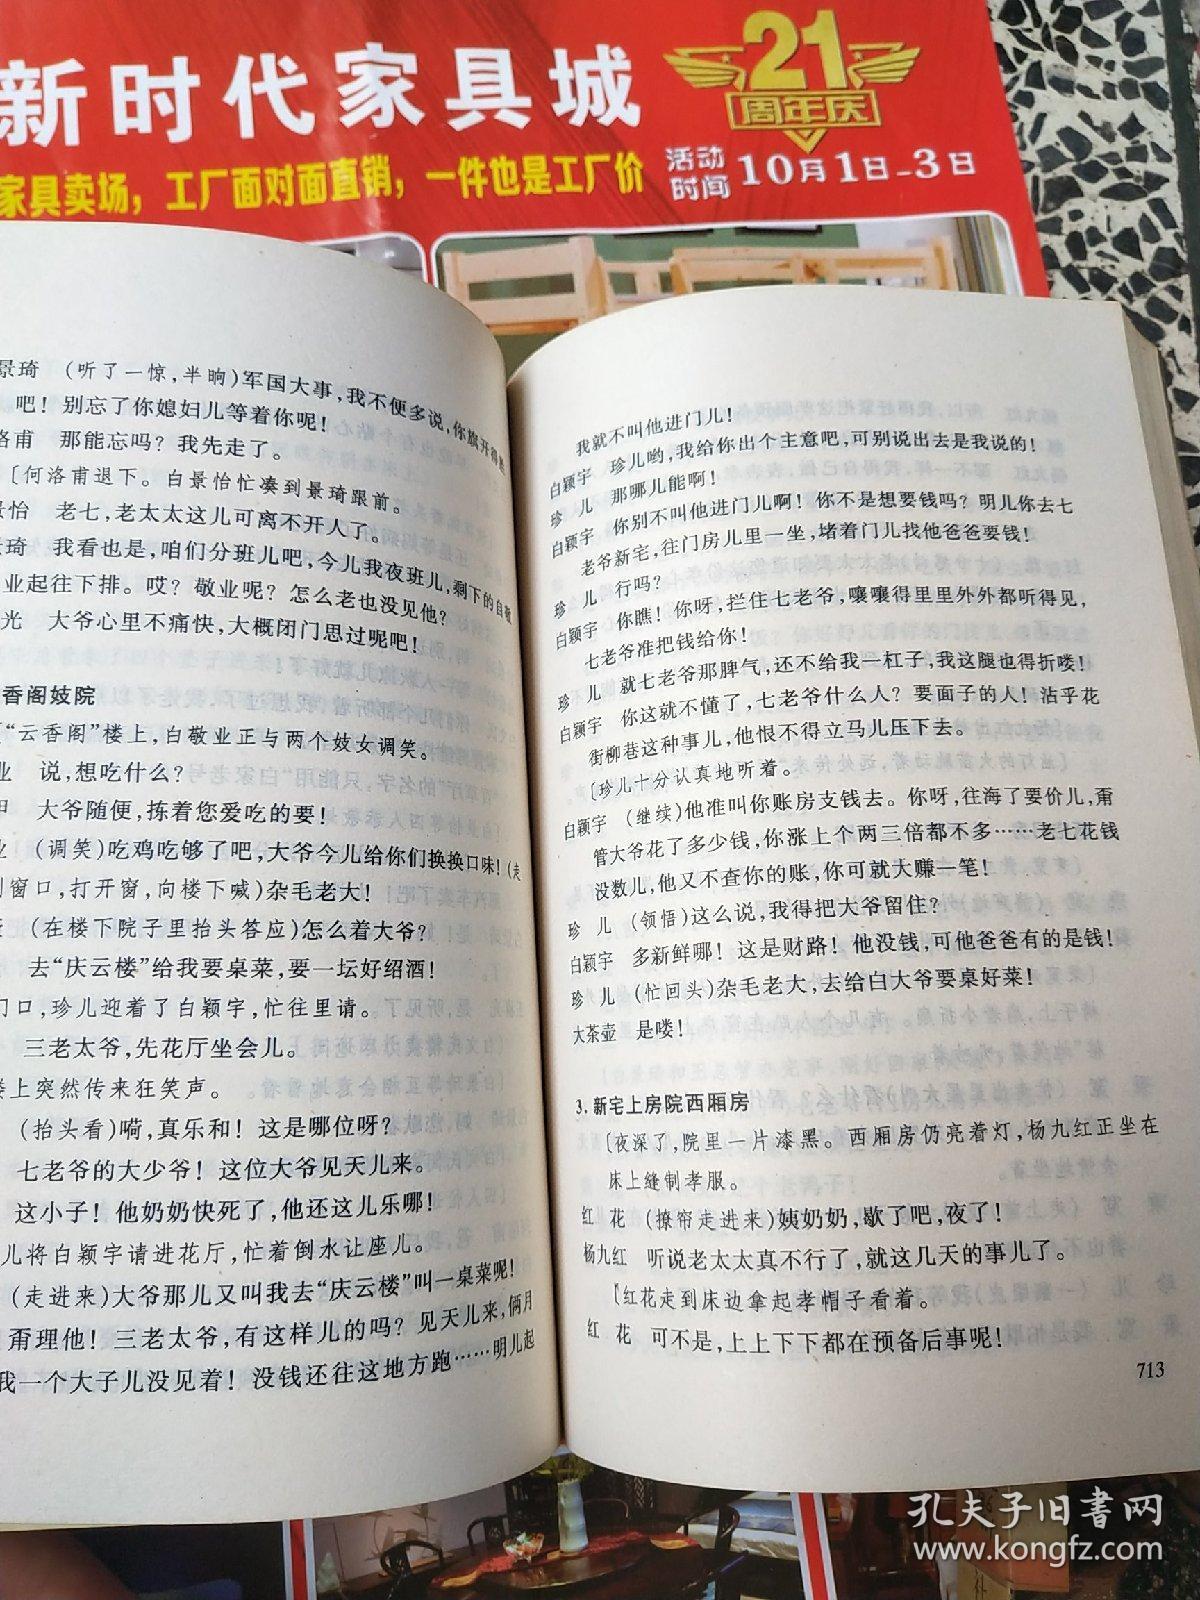 新时代家具城
21
周年庆
家具卖场，工厂面对面直销，一件也是工厂价
活动
时间
10月1日-3日
景琦　(听了一惊,半晌)军国大事,我不便多说,你旗开得胜
吧！别忘了你媳妇儿等着你呢！
洛甫　那能忘吗？我先走了。
〔何洛甫退下。白景怡忙凑到景琦跟前。
景怡　老七,老太太这儿可离不开人了。
景琦　我看也是,咱们分班儿吧,今儿我夜班儿,剩下的自敬
业起往下排。哎？敬业呢？怎么老也没见他？
光　大爷心里不痛快,大概闭门思过呢吧！
香阁妓院
“云香阁”楼上,白敬业正与两个妓女调笑。
业　说,想吃什么？
甲　大爷随便,拣着您爱吃的要！
业　(调笑)吃鸡吃够了吧,大爷今儿给你们换换口味！(走
到窗口,打开窗,向楼下喊)杂毛老大！
(在楼下院子里抬头答应)怎么着大爷？
去“庆云楼”给我要桌菜,要一坛好绍酒！
门口,珍儿迎着了白颖宇,忙往里请。
三老太爷,先花厅坐会儿。
楼上突然传来狂笑声。
(抬头看)嗬,真乐和！这是哪位呀？
七老爷的大少爷！这位大爷见天儿来。
这小子！他奶奶快死了,他还这儿乐哪！
儿将白颖宇请进花厅,忙着倒水让座儿。
(走进来)大爷那儿又叫我去“庆云楼”叫一桌菜呢！
甭理他！三老太爷,有这样儿的吗？见天儿来,俩月
我一个大子儿没见着！没钱还往这地方跑……明儿起
我就不叫他进门儿！
白颖宇　珍儿哟,我给你出个主意吧,可别说出去是我说的！
珍　儿　那哪儿能啊！
白颖宇　你别不叫他进门儿啊！你不是想要钱吗？明儿你去七
老爷新宅,往门房儿里一坐,堵着门儿找他爸爸要钱！
珍　儿　行吗？
白颖宇　你瞧！你呀,拦住七老爷,嚷嚷得里里外外都听得见,
七老爷准把钱给你！
珍　儿　就七老爷那脾气,还不给我一杠子,我这腿也得折喽！
白颖宇　你这就不懂了,七老爷什么人？要面子的人！沾乎花
街柳巷这种事儿,他恨不得立马儿压下去。
〔珍儿十分认真地听着。
白颖宇　(继续)他准叫你账房支钱去。你呀,往海了要价儿,甭
管大爷花了多少钱,你涨上个两三倍都不多……老七花钱
没数儿,他又不查你的账,你可就大赚一笔！
珍　儿　(领悟)这么说,我得把大爷留住？
白颖宇　多新鲜哪！这是财路！他没钱,可他爸爸有的是钱！
珍　儿　(忙回头)杂毛老大,去给白大爷要桌好菜！
大茶壶　是喽！
3. 新宅上房院西厢房
〔夜深了,院里一片漆黑。西厢房仍亮着灯,杨九红正坐在
床上缝制孝服。
红　花　(撩帘走进来)姨奶奶,歇了吧,夜了！
杨九红　听说老太太真不行了,就这几天的事儿了。
〔红花走到床边拿起孝帽子看着。
红　花　可不是,上上下下都在预备后事呢！
713
孔夫子旧书网
www.kongfz.com